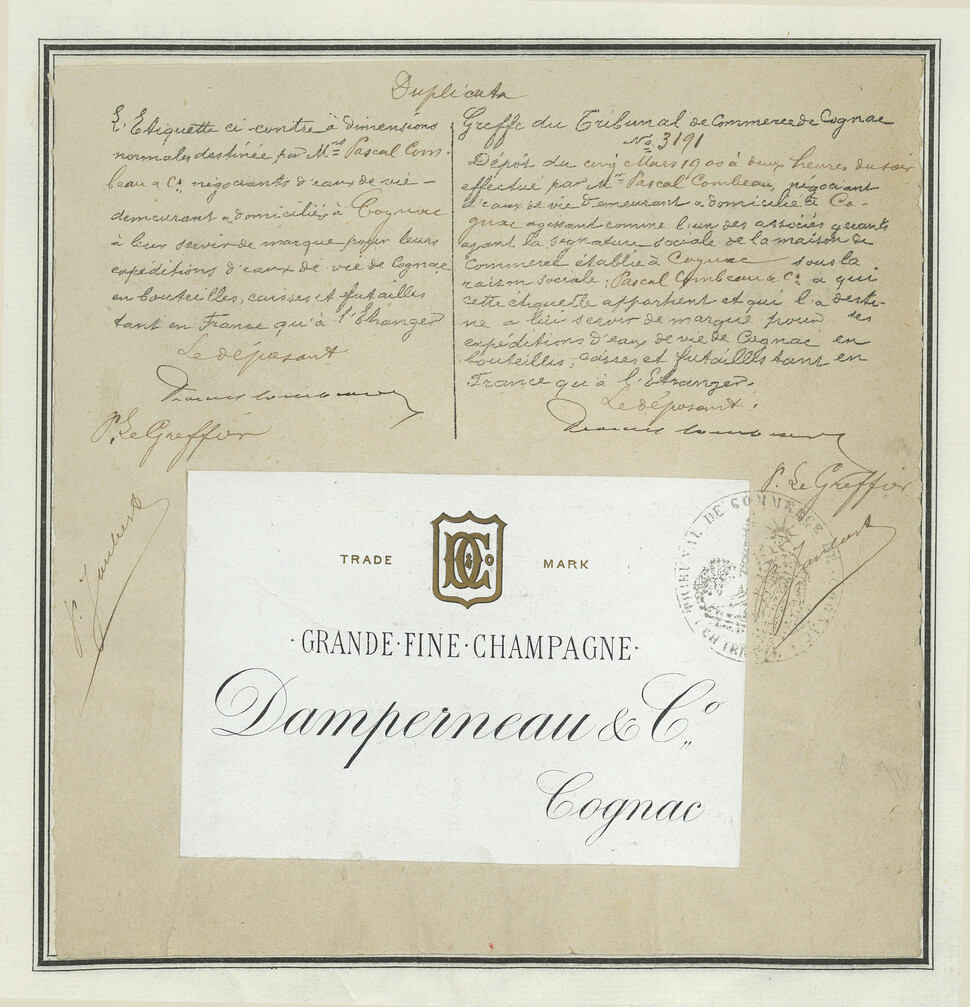 Duplicata
L'Etiquette ci contre à dimensions
normales destinée par Mrs Pascal Com-
beau & Co négociants d'eaux de vie –
demeurant & domiciliés à Cognac
à leur servir de marque pour leurs
expéditions d'eaux de vie de Cognac
en bouteilles, caisses et futailles
tant en France qu'à l'Etranger
Le déposant
P. Le Greffier
Greffe du Tribunal de Commerce de Cognac
No 3191
Dépôt du cinq Mars 1900 à deux heures du soir
effectué par Mr Pascal Combeau, négociant
d'eaux de vie demeurant & domicilié à Co-
gnac agissant comme l'un des associés gérants
ayant la signature sociale de la maison de
Commerce établie à Cognac sous la
raison sociale: Pascal Combeau & Co à qui
cette étiquette appartient et qui l'a desti-
né à lui servir de marque pour ses
expéditions d'eaux de vie de Cognac en
bouteilles, caisses et futailles tant en
France qu'à l'Etranger.
Le déposant.
P. Le Greffier
TRIBUNAL DE COMMERCE DE
TRADE MARK
D&Co
·GRANDE·FINE·CHAMPAGNE·
Damperneau & Co.
Cognac